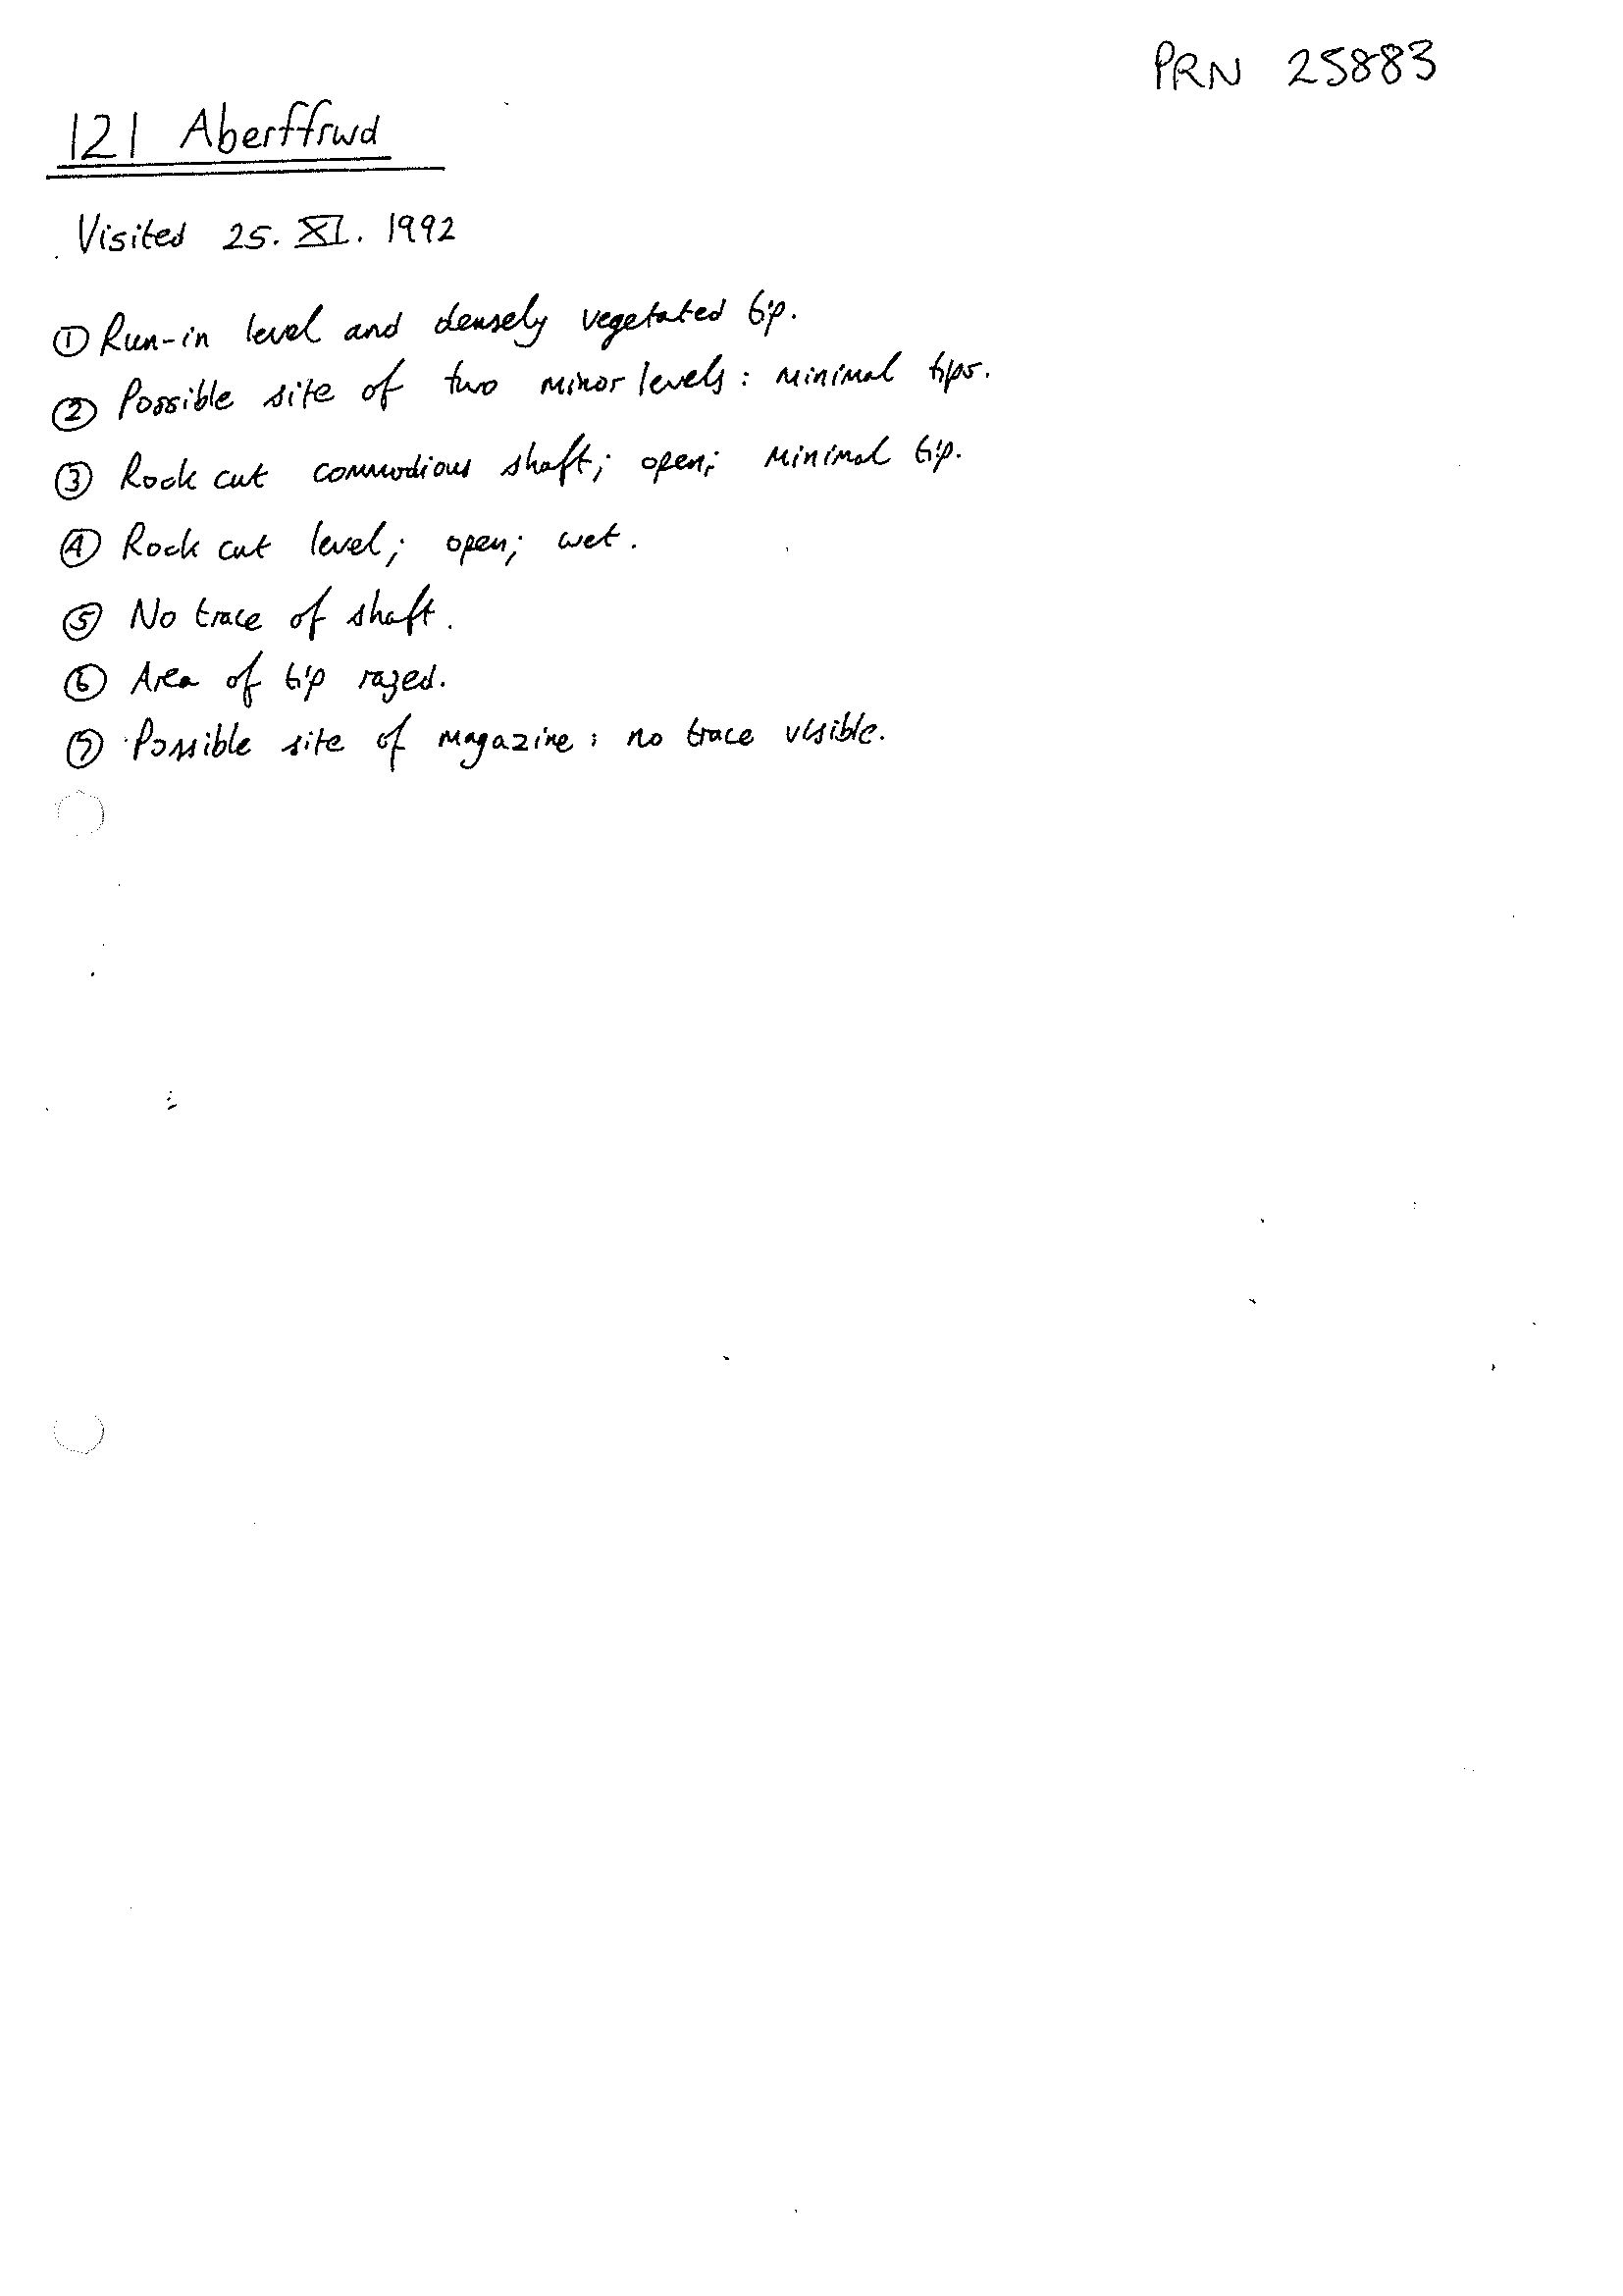 PRN 25883
121 Aberffrwd
Visited 25. XI. 1992
① Run-in level and densely vegetated tip.
② Possible site of two minor levels: minimal tips.
③ Rock cut commodious shaft; open; minimal tip.
④ Rock cut level; open; wet.
⑤ No trace of shaft.
⑥ Area of tip razed.
⑦ Possible site of magazine: no trace visible.